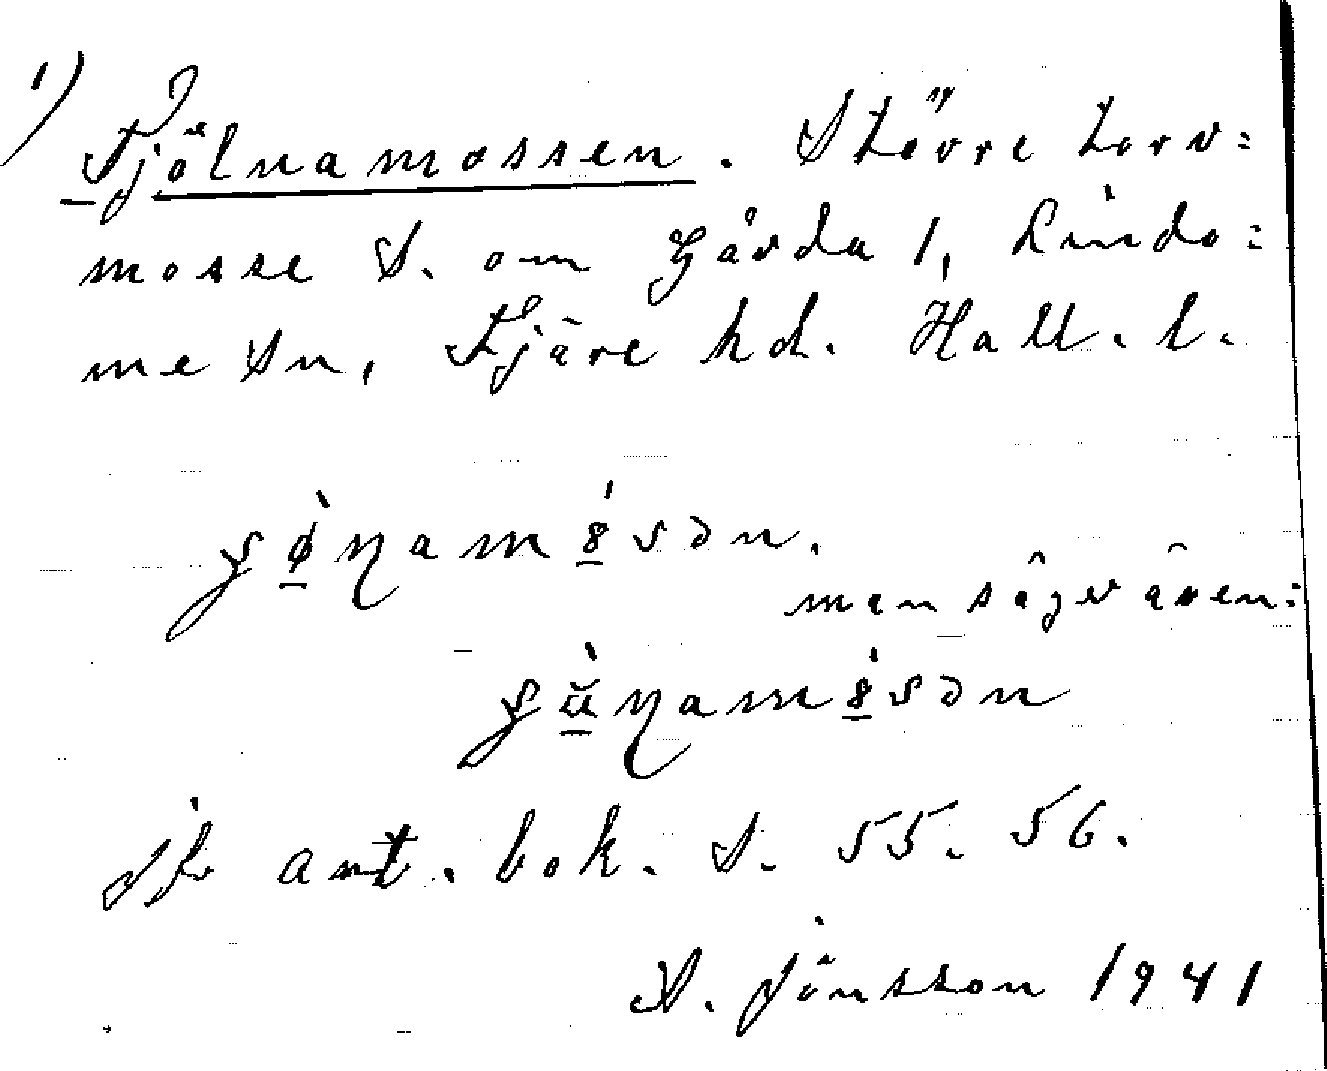 1) Fjölnamossen. Större torv=
mosse S. om Gårda 1, Lindo=
me sn, Fjäre hd. Hall. l.
man säger även:
Jfr ant. bok. s. 55. 56.
S. Jönsson 1941